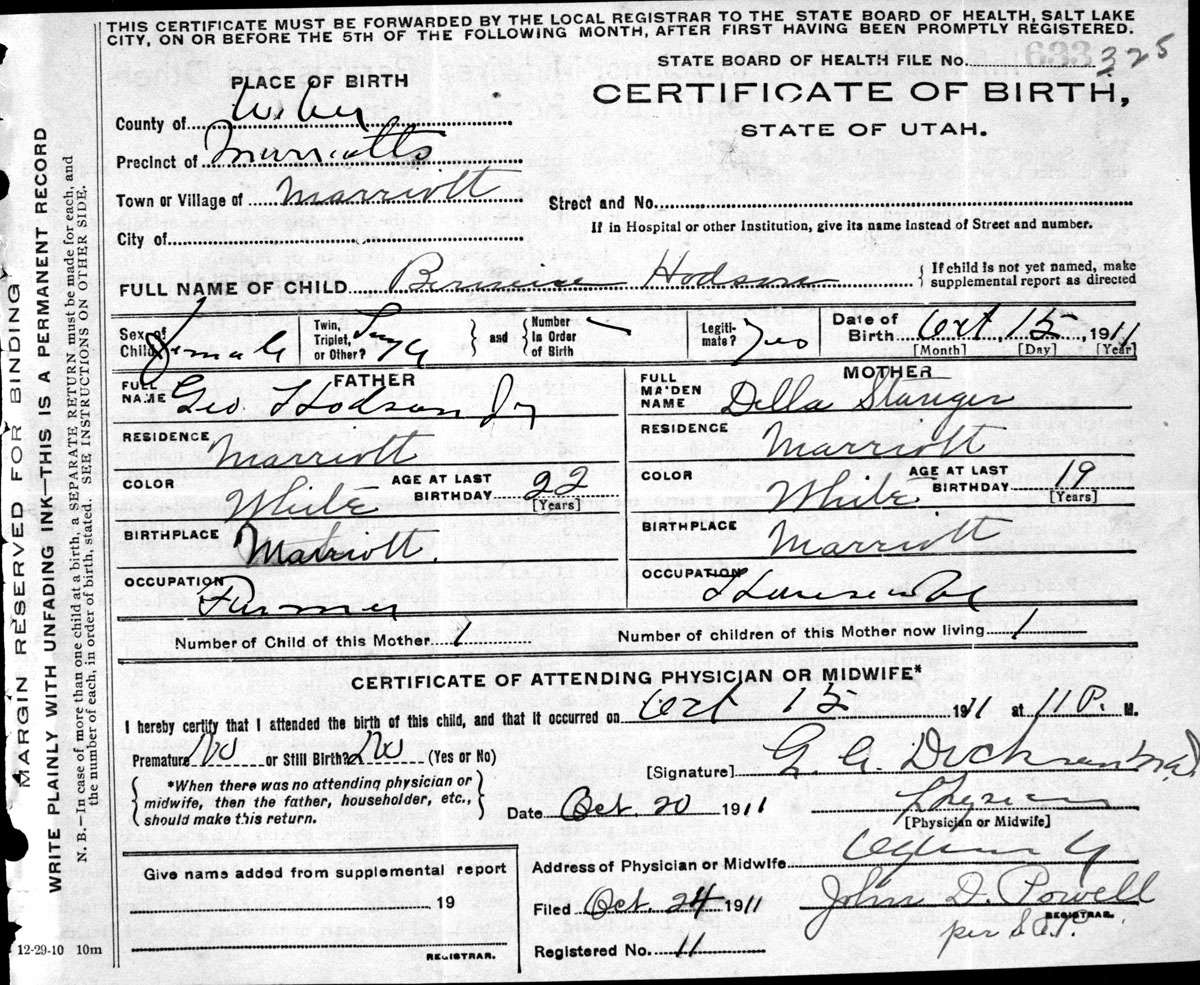 THIS CERTIFICATE MUST BE FORWARDED BY THE LOCAL REGISTRAR TO THE STATE BOARD OF HEALTH, SALT LAKE
CITY, ON OR BEFORE THE 5TH OF THE FOLLOWING MONTH, AFTER FIRST HAVING BEEN PROMPTLY REGISTERED.
STATE BOARD OF HEALTH FILE No. 325
PLACE OF BIRTH
CERTIFICATE OF BIRTH,
STATE OF UTAH.
County of Weber
Precinct of Marriotts
Town or Village of Marriott
Street and No.
City of
If in Hospital or other Institution, give its name instead of Street and number.
FULL NAME OF CHILD Hodson
If child is not yet named, make
supplemental report as directed
Sex of Child Female
Twin, Triplet, or Other?
and
Number in Order of Birth
Legiti-mate? Yes
Date of Birth Oct, 15, 1911
[Month] [Day] [Year]
FATHER
MOTHER
FULL NAME Geo Hodson Jr
FULL MAIDEN NAME Della Stanger
RESIDENCE Marriott
RESIDENCE Marriott
COLOR White AGE AT LAST BIRTHDAY 22 [Years]
COLOR White AGE AT LAST BIRTHDAY 19 [Years]
BIRTHPLACE Marriott.
BIRTHPLACE Marriott
OCCUPATION Farmer
OCCUPATION Housewife
Number of Child of this Mother 1
Number of children of this Mother now living 1
CERTIFICATE OF ATTENDING PHYSICIAN OR MIDWIFE*
I hereby certify that I attended the birth of this child, and that it occurred on Oct 15 1911 at 11 P. M.
Premature No or Still Birth? No (Yes or No)
[Signature] G. A. Dickson M.D.
*When there was no attending physician or
midwife, then the father, householder, etc.,
should make this return.
Date Oct. 20 1911
Physician
[Physician or Midwife]
Give name added from supplemental report
19
REGISTRAR.
Address of Physician or Midwife
Filed Oct. 24 1911 John D. Powell
REGISTRAR.
per
Registered No. 11
12-29-10 10m
MARGIN RESERVED FOR BINDING
WRITE PLAINLY WITH UNFADING INK—THIS IS A PERMANENT RECORD
N. B.—In case of more than one child at a birth, a SEPARATE RETURN must be made for each, and
the number of each, in order of birth, stated. SEE INSTRUCTIONS ON OTHER SIDE.